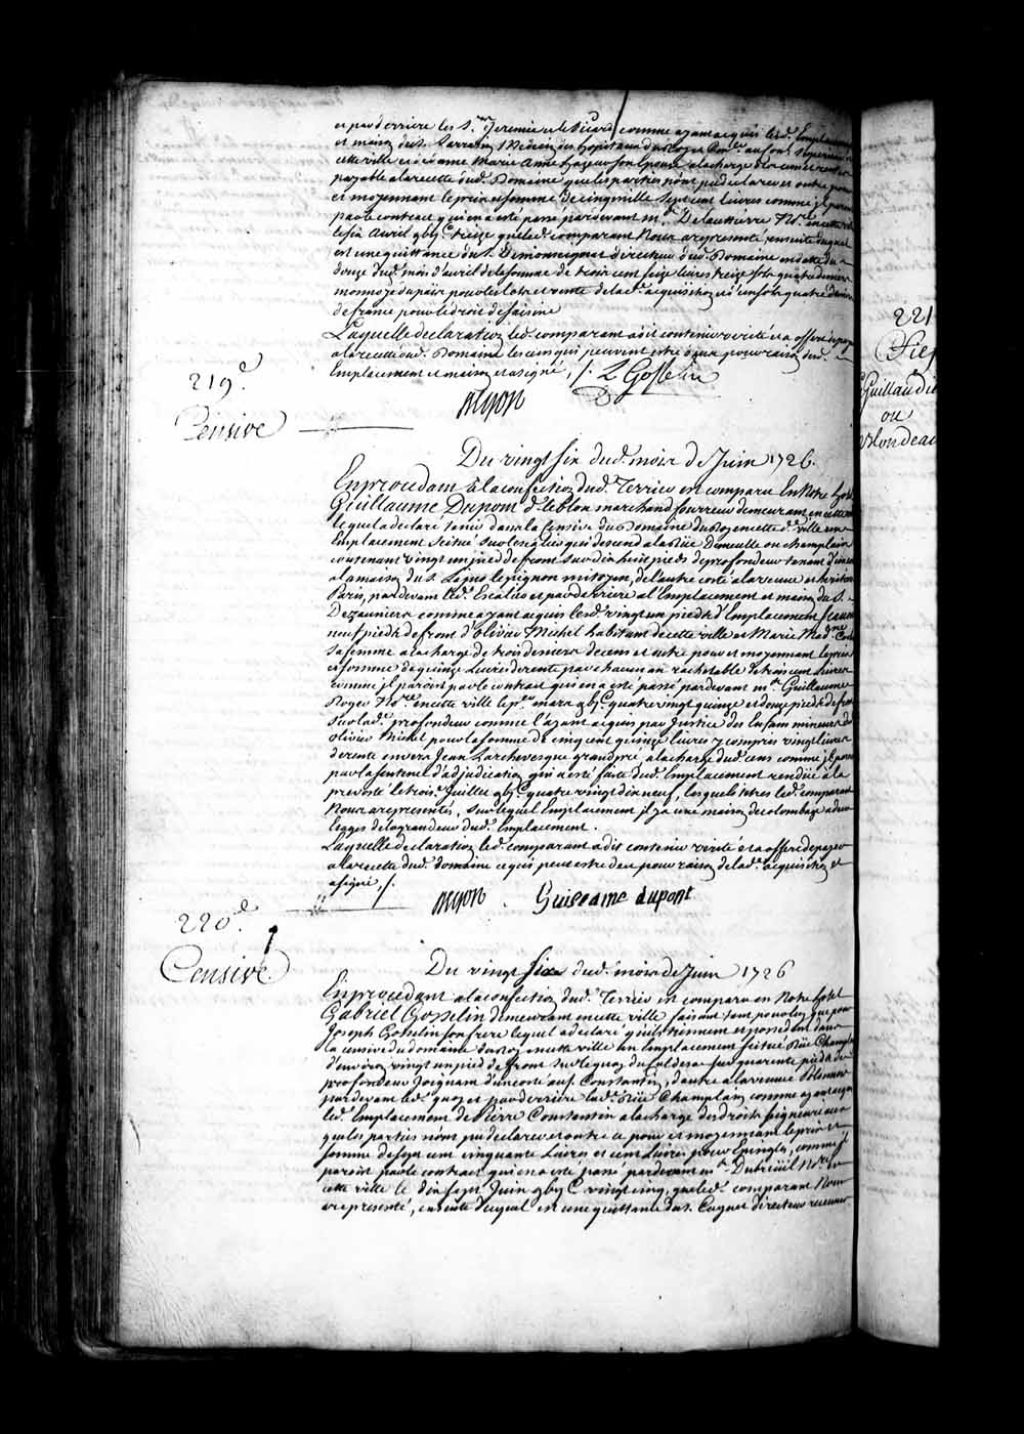 et par derriere les Srs. Jeremie et le Picard comme ayant acquis led. Emplacement
et maison du Sr. Sarrazin Medecin des hopitaux du Roy et Conser. au Conseil Superieur
cette ville et de dame Marie Anne hazeur son Epouse a la charge des cens et rentes
payable a la recette dud. Domaine que les parties n'ont pu declarer et outre pour
et moyennant le prix et somme de cinq mille Sept cent livres comme jl paroist
par le contrat qui en a esté passé pardevant me. De la Cettiere Nore. en cette ville
le six Avril gbijc. treize que led. comparant Nous a representé, ensuite duquel
est une quittance du Sr. De monseignat directeur dud. Domaine en datte du
douze dud. mois d'avril de la somme de trois cent seize livres treize sols quatre deniers
monnoye du pais pour les lots et ventes de lad. acquisition et d'un sols quatre deniers
de france pour le droit de saisine
Laquelle declaration led. comparant a dit contenir verité et a offert de payer
a la recette dud. Domaine les cens qui peuvent estre deux pour raison dud.
Emplacement et maison et a signé, /. L Gosselin
219e.
Censive
Du vingt six dud. mois de Juin 1726.
En procedant a la confection dud. Terrier est comparu En Notre hotel
Guillaume Dupont d. leblon marchand fourreur demeurant en cette ville
lequel a declaré tenir dans la Censive du Domaine du Roy en cette d. ville un
Emplacement Scitué sur les escaliers qui descend a la Rüe Demeulle ou champlain
contenant vingt un pied de front sur dix huit pieds de profondeur tenant d'un costé
a la maison du S. Lapns le pignon mitoyen, de l'autre costé a la veuve et heritiers
Paris, par devant led. Escalier et par derriere a l'Emplacement et maison du S.
Dezauniers comme ayant acquis lesd. vingt un pieds d'Emplacement Scavoir
neuf pieds de front d'olivier Michel habitant de cette ville et Marie Madne.
sa femme a la charge de trois deniers de cens et outre pour et moyennant le prix
et somme de quinze livres de rente par chacun an rachetable de trois cent livres
comme jl paroist par le contrat qui en a esté passé pardevant me. Guillaume
Roger Nore. en cette ville le per. mars gbjc. quatre vingt quinze et douze pieds de front
sur lad. profondeur comme l'ayant acquis par Justice des Enfans mineurs dud.
olivier Michel pour la somme de cinq cent quinze livres y compris vingt livres
de rente envers Jean Larchevesque grandpré a la charge dud. cens comme jl paroist
par la sentence d'adjudication qui a esté faite dud. Emplacement rendüe a la
prevosté le trois. Juillet gbjc. quatre vingt dix neuf, lesquels titres led. comparant
Nous a representés, sur lequel Emplacement jl y a une maison de colombage a deux
etages de la grandeur dud. Emplacement.
Laquelle declaration led. comparant a dit contenir verité et a offert de payer
a la recette dud. domaine ce qui peut estre deu pour raison de lad. acquisition et
a signé, /.
Guillaume dupont
220e.
Censive
Du vingt Six dud. mois de Juin 1726
En procedant a la confection dud. Terrier est comparu en Notre hotel
Gabriel Gosselin demeurant en cette ville faisant tant pour luy que pour
Joseph Gosselin son frere lequel a declaré qu'ils tiennent et possedent dans
la censive du domaine du Roy en cette ville un Emplacement scitué Rüe Champlain
d'environ vingt un pied de front sur le quay du Culdesac sur quarente pieds de
profondeur Joignant d'un costé aud. Constantin, d'autre a la veuve
par devant led. quay et par derriere lad. Rüe Champlain comme ayant acquis
led. Emplacement de Pierre Constantin a la charge des droits seigneuriaux
que les parties n'ont pu declarer et outre ce pour et moyennant le prix et
somme de sept cent cinquante Livres et cent Livres pour Epingles, comme jl
paroist par le contrat qui en a esté passé pardevant me. Dubreüil Nore. en
cette ville le dix sept Juin gbijc. vingt cinq, que led. comparant Nous
a representé, ensuite duquel est une quittance du S. Cugnet directeur receveur
221
Fief
Guillaudiere
ou